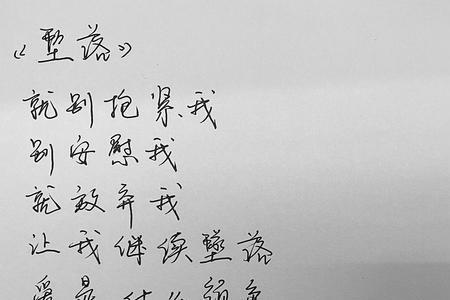 《墜落》
就别抱紧我
别安慰我
就放弃我
让我继续墜落